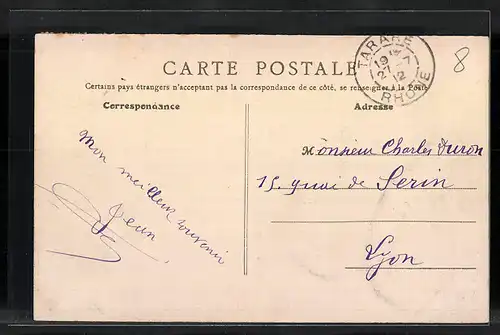 CARTE POSTALE
Certains pays étrangers n'acceptent pas la correspondance de ce côté, se renseigner à la Poste
Correspondance
Adresse
TARARE
27 - 7
12
RHÔNE
8
Mon meilleur souvenir
Jean
Monsieur Charles Duron
15, quai de Serin
Lyon